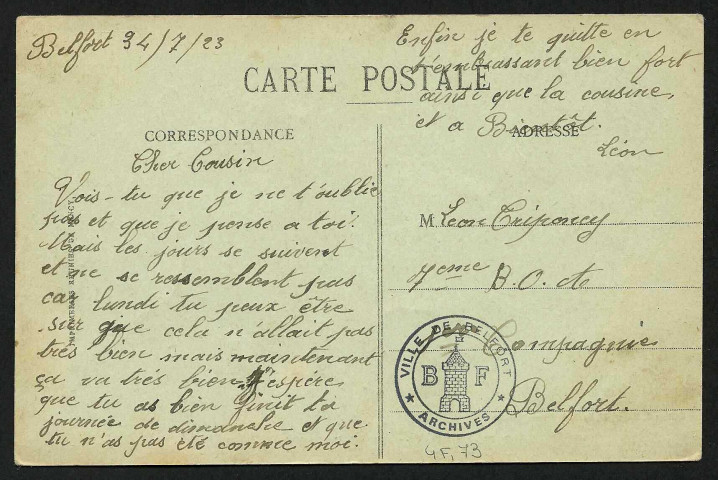 Belfort 24/7/23
CARTE POSTALE
CORRESPONDANCE
Cher Cousin
Vois-tu que je ne t'oublie
pas et que je pense a toi.
Mais les jours se suivent
et ne se ressemblent pas
car lundi tu peux être
sur que cela n'allait pas
trés bien mais maintenant
ça va trés bien. J'espère
que tu as bien finit ta
journée de dimanche et que
tu n'as pas été comme moi.
Enfin je te quitte en
t'embrassant bien fort
ainsi que la cousine,
et a Bientôt.
Léon
ADRESSE
M Leon Triponey
7eme B.O.A
Compagnie
Belfort.
VILLE DE BELFORT
B F
★ ARCHIVES ★
4F,73